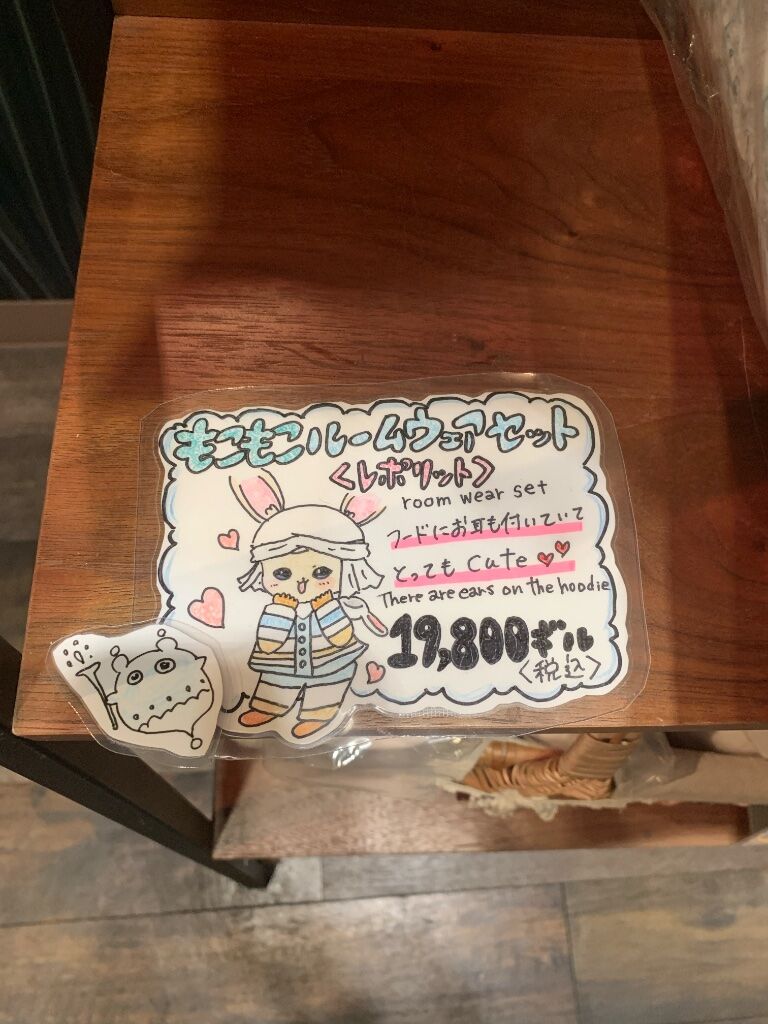 もこもこルームウェアセット
<レポリット>
room wear set
フードにお耳も付いていて
とっても cute
There are ears on the hoodie
19,800ギル
<税込>